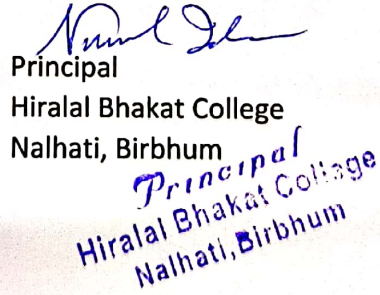 Principal
Hiralal Bhakat College
Nalhati, Birbhum
Principal
Hiralal Bhakat College
Nalhati, Birbhum